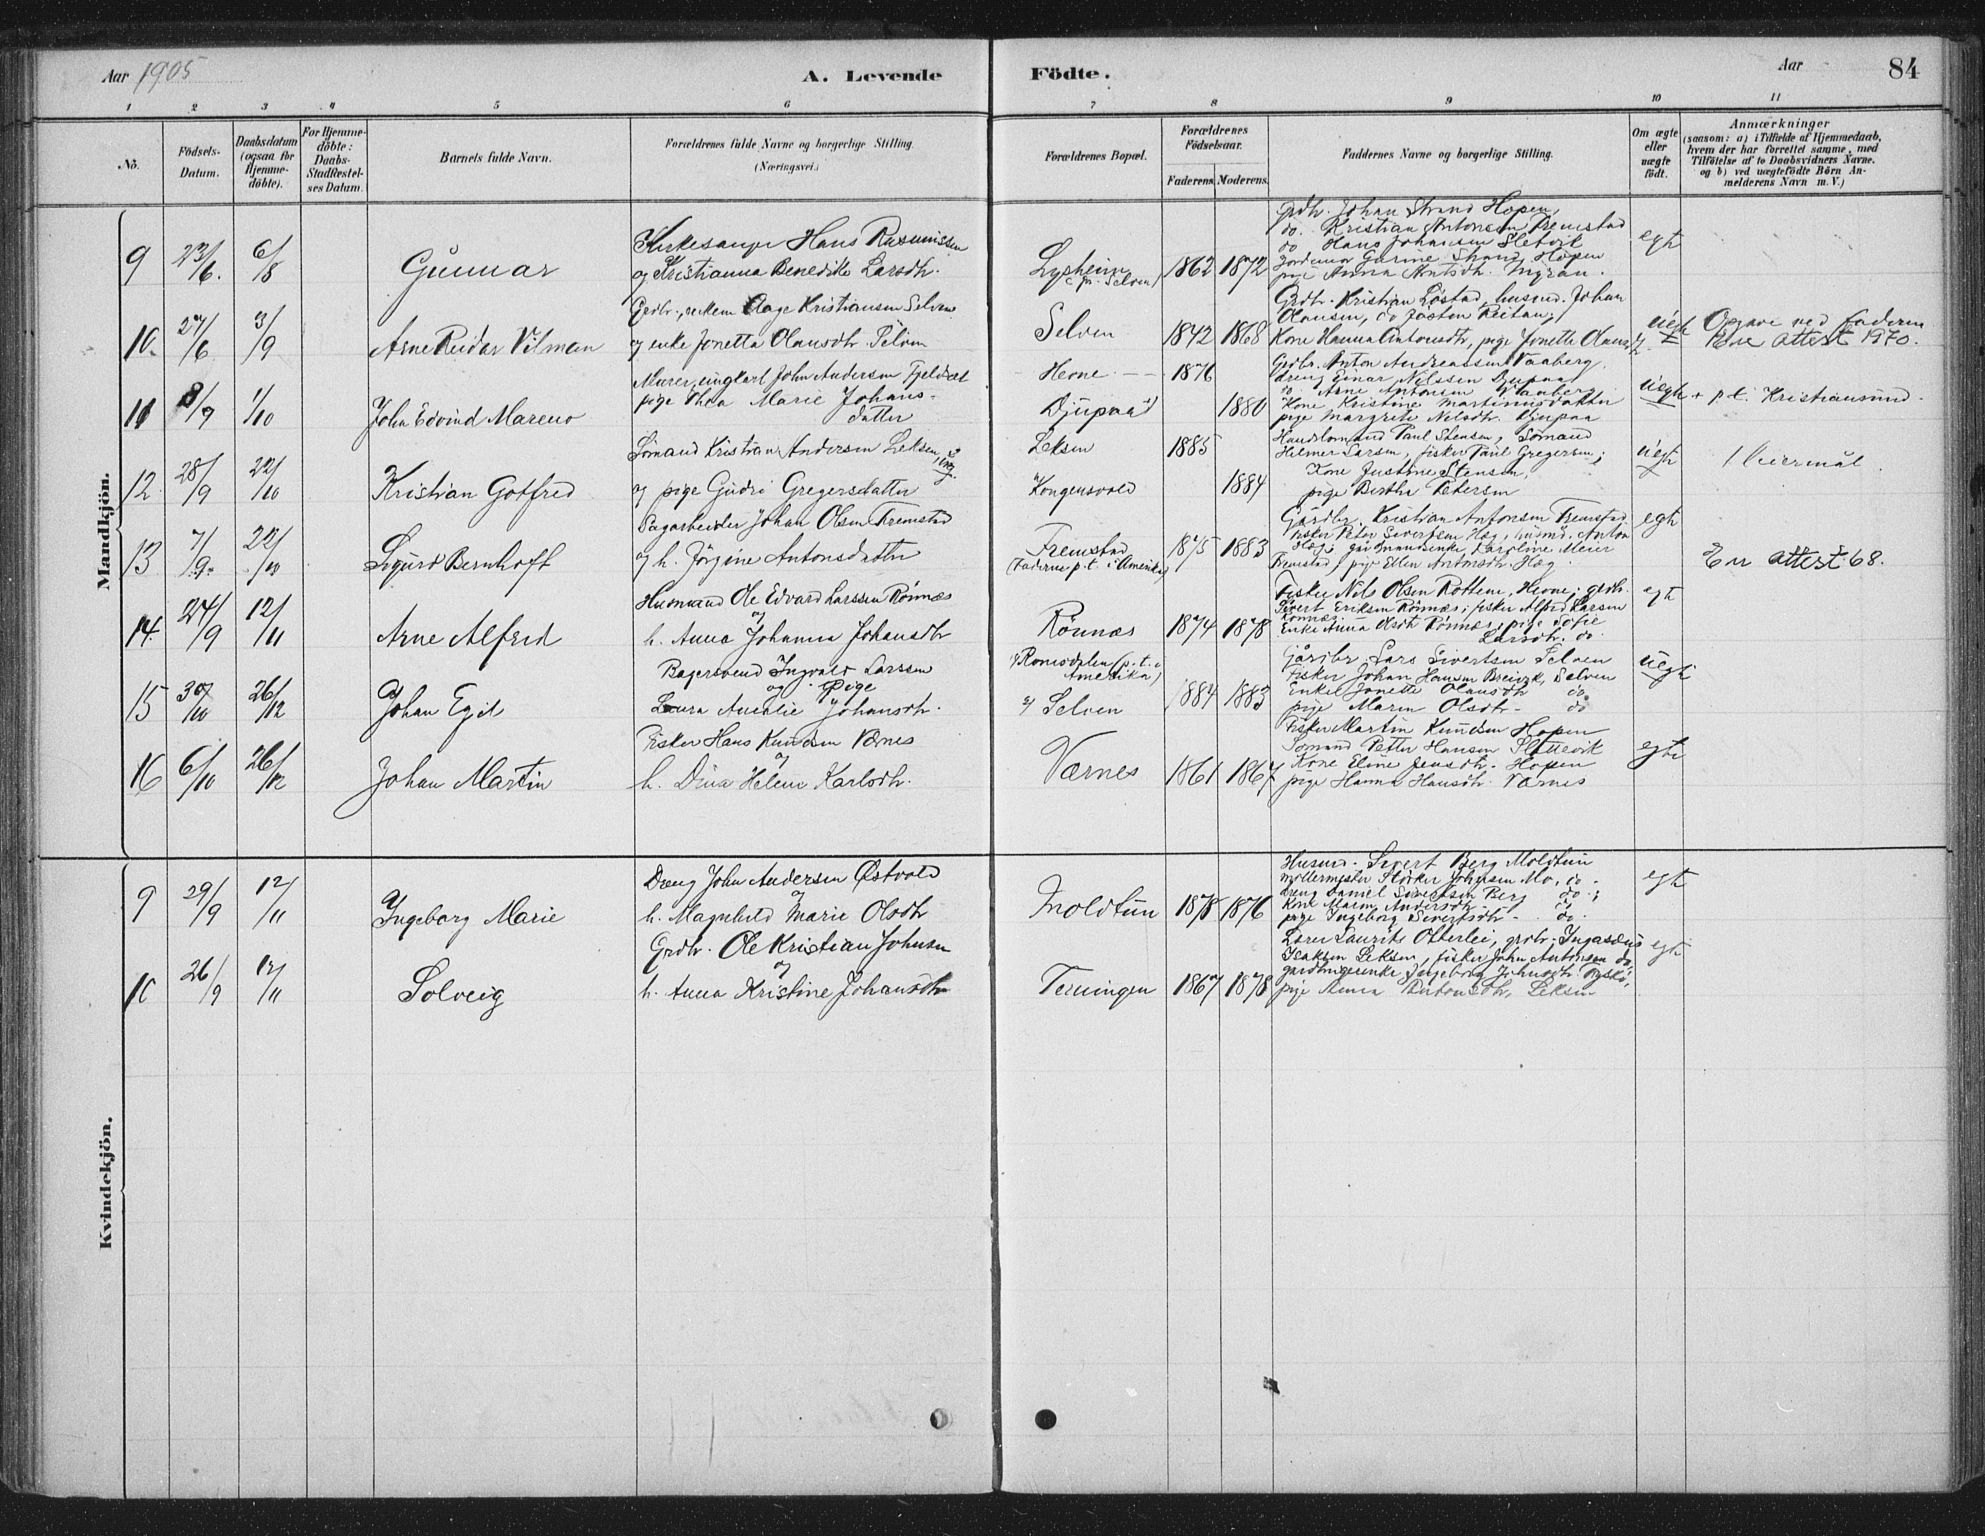 Aar 1905
A. Levende
Födte.
Aar
84
1 2 3 4 5 6 7 8 9 10 11
No.
Födsels-
Datum.
Daabsdatum
(ogsaa for
Hjemme-
döbte).
For Hjemme-
döbte:
Daabs-
Stadfæstel-
ses Datum.
Barnets fulde Navn.
Forældrenes fulde Navne og borgerlige Stilling.
(Næringsvei.)
Forældrenes Bopæl.
Forældrenes
Födselsaar.
Faderens. Moderens.
Faddernes Navne og borgerlige Stilling.
Om ægte
eller
uægte
födt.
Anmærkninger
(saasom: a) i Tilfælde af Hjemmedaab,
hvem der har forrettet samme, med
Tilföielse af to Daabsvidners Navne.
og b) ved uægtefödte Börn An-
melderens Navn m. V.)
Mandkjön.
9
23/6.
6/8
Gunnar
Kirkesanger Hans Rasmussen
og Kristianna Benedikte Larsdtr.
Lysheim
(pr. Selven)
1862
1872
Grdbr. Johan Strand Hopen,
do. Kristian Antonsen Fremstad
do Hans Johansen Sletvik
Jordemor Gurine Strand Hopen
pige Anna Arntsdtr. Myran.
egte
10.
27/6
3/9
Arne Reidar Vilman
Grdbr., enkem Aage Kristiansen Selven
og enke Jonetta Olausdtr Selven
Selven
1842
1868
Grdbr. Kristian Løstad, husmd. Johan
Olausen, do Joston Reitan;
Kone Hanna Antonsdtr, pige Jonette Olausdtr
uegte
Opgave ved Faderen
Ene attest 1970.
11
8/7
1/10
John Edvind Mareno
Murer, ungkarl John Andersen Fjeldset
pige Thea Marie Johans-
datter
Hevne
Djupaa
1876
1880
Grdbr. Anton Andreassen Vaaberg
dreng Einar Nilssen Djupaa
do Arne Antonsen Vaaberg
Kone Kristine Martinusdatter
pige Margrete Nilsdtr. Djupaa
uegte
+ p.t. Kristiansund.
12
28/9
22/10
Kristian Gotfred
Sömand Kristian Andersen Leksen,
og pige Gudri Gregersdatter
Leksen
Kongensvold
1885
1884
Handlsmand Paul Stensen, Sömand
Helmer Larsen, fisker Paul Gregersen;
Kone Justine Stensen,
pige Berthe Petersen
uegte
1 leiermål.
13
7/9.
22/10
Sigurd Bernhoft
Sagarbeider Johan Olsen Fremstad
og h. Jörgine Antonsdatter
Fremstad
(Faderen p.t. i Amerika)
1875
1883
Gårdbr. Kristian Antonsen Fremstad
fisker Peter Sivertsen Hög, husmd. Anton
Hög; gårdmandsenke Karoline Meier
Fremstad, pige Ellen Antonsdtr. Hög
egte
En attest 68.
14.
24/9
12/11
Arne Alfred
Husmand Ole Edvard Larssen Rönnes
og
h. Anna Johanna Johansdtr
Rönnæs
1874
1878
Fisker Nils Olsen Rottem, Hevne; grdbr.
Sivert Eriksen Rönnæs; fisker Alfred Larsen
Rönnæs;
Enke Anna Olsdtr Rönnæs, pige Sofie
Larsdtr. do.
egte
15
30/10
26/12
Johan Egil
Bagersvend Ingvald Larssen
og pige
Laura Amalie Johansdtr.
Romsdalen (p.t. i
Amerika)
Selven
1884
1883
Gårdbr. Lars Sivertsen Selven
Fisker Johan Hansen Breivik, Selven
Enke Jonette Olausdtr do
pige Maren Olsdtr. do
uegte
16
6/10
26/12
Johan Martin
Fisker Hans Knudsen Værnes
og
h. Dina Helene Karlsdtr.
Værnes
1861
1867
Fisker Martin Knudsen Hopen
Sömand Petter Hansen Slettevik
Kone Eline Jensdtr. Hopen
pige Hanna Hansdtr. Værnes
egte
Kvindekjön.
9
29/9
12/11
Ingeborg Marie
Dreng John Andersen Østvold
og
h. Magnhild Marie Olsdtr
Moldtun
1878
1876
Husmd. Sivert Berg Moldtun
møllermester Störker Johnsen Mo, do.
dreng Daniel Sivertsen Berg do.;
Kone Maren Andersdtr. do
pige Ingeborg Sivertsdtr. do.
egte
10
26/9
12/11
Solveig
Grdbr. Ole Kristian Johnsen
og
h. Anna Kristine Johansdtr
Terningen
1867
1878
Lærer Laurits Otterlei, grdbr. Ingasæus
Isaksen Leksen, fisker John Antonsen do
gårdbrugerenke Ingeborg Johnsdtr.
pige Anna Antonsdtr, Leksen
egte